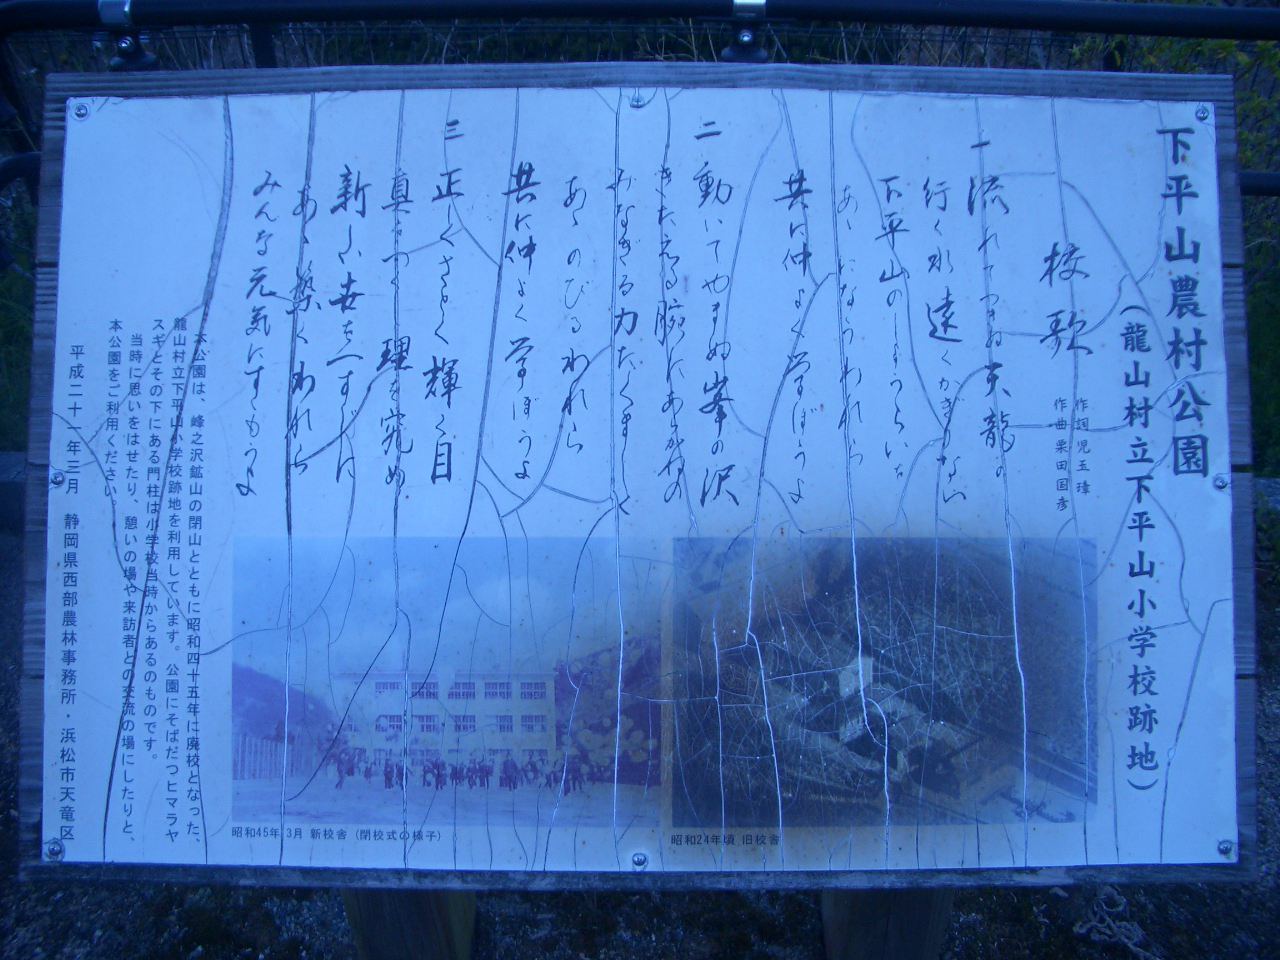 下平山農村公園
（龍山村立下平山小学校跡地）
校歌
作詞 児玉 瑋
作曲 栗田国彦
一 流れてつきぬ天龍の
行く水遠くかぎりない
下平山の
あゝ になうわれら
共に仲よく学ぼうよ
二 動いてやまぬ峯の沢
きたえる腕にあかがねの
みなぎる力たくましく
あゝ のびるわれら
共に仲よく学ぼうよ
三 正しくさとく輝く目
真 理を究め
新しい世を一すじに
あゝ 築くわれら
みんな元気にすゝもうよ
本公園は、峰之沢鉱山の閉山とともに昭和四十五年に廃校となった、
龍山村立下平山小学校跡地を利用しています。公園にそばだつヒマラヤ
スギとその下にある門柱は小学校当時からあるのものです。
当時に思いをはせたり、憩いの場や来訪者との交流の場にしたりと、
本公園をご利用ください。
平成二十一年三月 静岡県西部農林事務所・浜松市天竜区
昭和45年 3月 新校舎 （閉校式の様子）
昭和24年頃 旧校舎